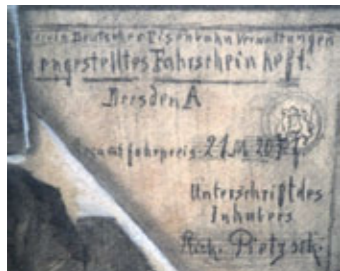 Verein Deutscher Eisenbahn Verwaltungen
engestelltes Fahrscheinheft.
Dresden A
Gesamtfahrpreis 21 M. 20 Pf.
Unterschrift des
Inhabers
Rich. Pietzsch.